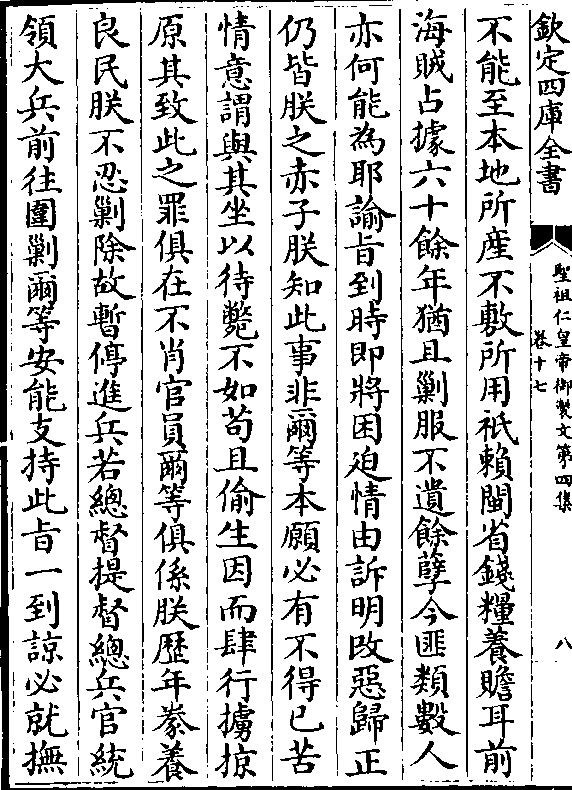 欽定四庫全書
聖祖仁皇帝御製文第四集
卷十七
八
不能至本地所產不敷所用祇賴閩省錢糧養贍耳前
海賊占據六十餘年猶且剿服不遺餘孽今匪類數人
亦何能為耶諭旨到時即將困廹情由訴明改惡歸正
仍皆朕之赤子朕知此事非爾等本願必有不得已苦
情意謂與其坐以待斃不如苟且偷生因而肆行擄掠
原其致此之罪俱在不肖官員爾等俱係朕歷年豢養
良民朕不忍剿除故暫停進兵若總督提督總兵官統
領大兵前往圍剿爾等安能支持此旨一到諒必就撫